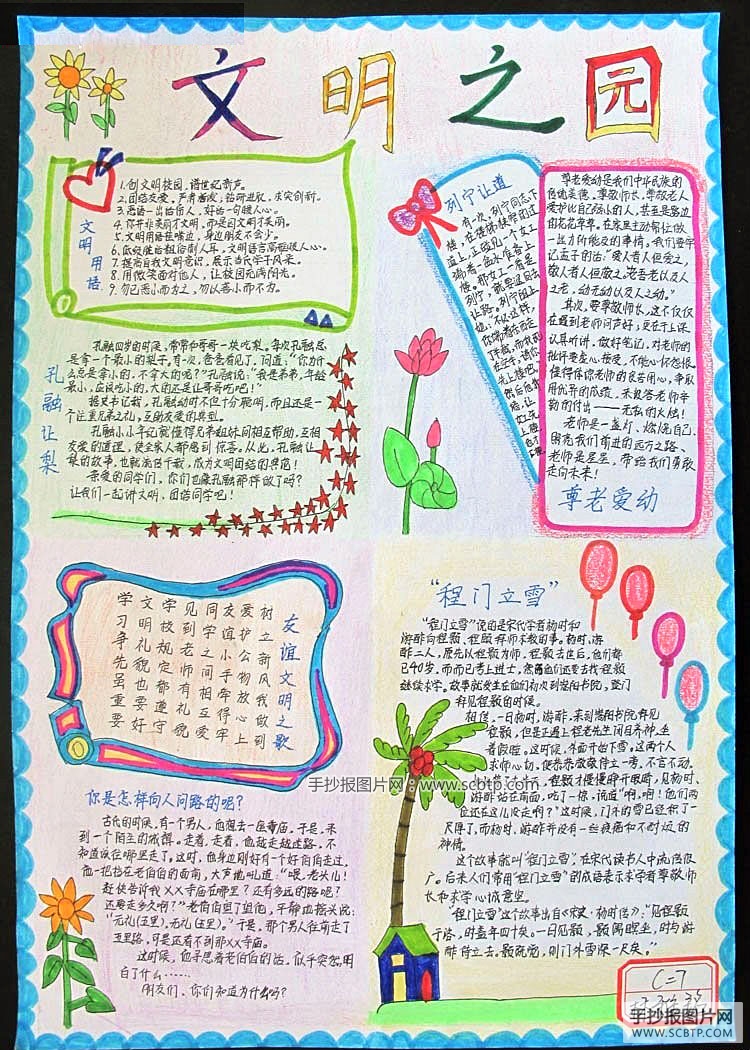 文明之园
文明用语
1.创文明校园,谱世纪新声。
2.团结友爱,尊师
3.恶语一出伤百人,好话一句暖人心。
4.你并非美丽才文明,而是因文明才美丽。
5.文明用语挂嘴边,身边朋友不会少。
7.提高自我文明意识,展示
8.用微笑面对他人,让校园充满阳光。
9.勿已恶小而为之,勿以善小而不为。
孔融让梨
孔融四岁的时候,常常和哥哥一块吃梨。每次孔融总
是拿一个最小的梨子。有一次,爸爸看见了,问道:“你为什
么总是拿小的,不拿大的呢?”孔融说:“我是弟弟,年龄
最小,应该吃小的,大的还是让哥哥吃吧!”
据史书记载,孔融幼时不但十分聪明,而且还是一
个注重兄弟之礼,互助友爱的典型。
孔融小小年纪就懂得兄弟姐妹间相互帮助,互相
友爱的道理,使全家人都感到惊喜。从此,孔融让
梨的故事,也就流传千载,成为文明团结的典范!
亲爱的同学们,你们也像孔融那样做了吗?
让我们一起讲文明,团结同学吧!
列宁让道
有一次,列宁同志下
楼,在楼梯狭窄的过
道上,正碰见一个女工
端着一盆水
尊老爱幼是我们中华民族的
传统美德。尊敬师长,尊敬老人
爱护比自己弱小的人,甚至是路边
的花花草草。在家里主动帮忙做
一些力所能及的事情,我们要牢
记孟子的话:“爱人者人恒爱之,
敬人者人恒敬之,老吾老以及人
之老,幼无幼以及人之幼。”
其次,要尊敬师长,这不仅仅
在碰到老师问声好;更在于上课
认真听讲,做好笔记,对老师的
批评要虚心接受,不能心怀怨恨。
懂得体谅老师的良苦用心,争取
用优异的成绩,来报答老师辛
勤的付出——无私的大爱!
老师是一盏灯,燃烧自己,
照亮我们前进的远方之路、
老师是星星,带给我们勇敢
走向未来!
尊老爱幼
友谊文明之歌
树立新风我做到
爱护公物放心上
友谊小手牵得牢
同学之间相互爱
见到老师有礼貌
学校规定都遵守
文明礼貌也要好
学习争先虽重要
“程门立雪”
“程门立雪”说的是宋代学者杨时和
游酢向程颢、程颐拜师求教的事。杨时、游
酢二人,原先以程颢为师,程颢去世后,他们都
已40岁,而而已考上进士,然而他们还要去找程颐
继续求学。故事就发生在他们初次到嵩阳书院,登门
拜见程颐的时候。
相传,一日杨时、游酢,来到嵩阳书院拜见
程颐,但是正遇上程老先生闭目养神,坐
着假睡。这时候,外面开始下雪。这两人
求师心切,便恭恭敬敬侍立一旁,不言不动。
程颐才慢慢睁开眼睛,见杨时、
游酢站在面前,吃了一惊,说道:“啊,啊!他们两
位还在这儿没走啊?”这时候,门外的雪已经积了一
尺厚了,而杨时、游酢并没有一丝疲倦和不耐烦的
神情。
这个故事就叫“程门立雪”,在宋代读书人中流传很
广。后来人们常用“程门立雪”的成语表示求学者尊敬师
长和求学心诚意坚。
“程门立雪”这个故事出自《宋史·杨时传》:“见程颐
于洛,时盖年四十矣。一日见颐,颐偶瞑坐,时与游
酢侍立去。颐既觉,则门外雪深一尺矣。”
手抄报图片网:www.scbtp.com
你是怎样向人问路的呢?
古代的时候,有个男人,他想去一座寺庙。于是,来
到一个陌生的城镇。走着,走着,他越走越迷路,不
知道该往哪里走了。这时,他身边刚好有个好伯伯走过,
他一把挡在老伯伯的面前,大声地吼道:“喂,老头儿!
赶快告诉我XX寺庙在哪里?还有多远的路呢?
还要走多久啊?”老伯伯望了望他,平静地摇头说:
“无礼(五里),无礼(五里)。”于是,那个男人往前走了
五里路,可是还看不到那XX寺庙。
这时候,他寻思着老伯伯的话,似乎突然明
白了什么……
朋友们,你们知道为什么吗?
C=7
手抄报图片网
WWW.SCBTP.COM